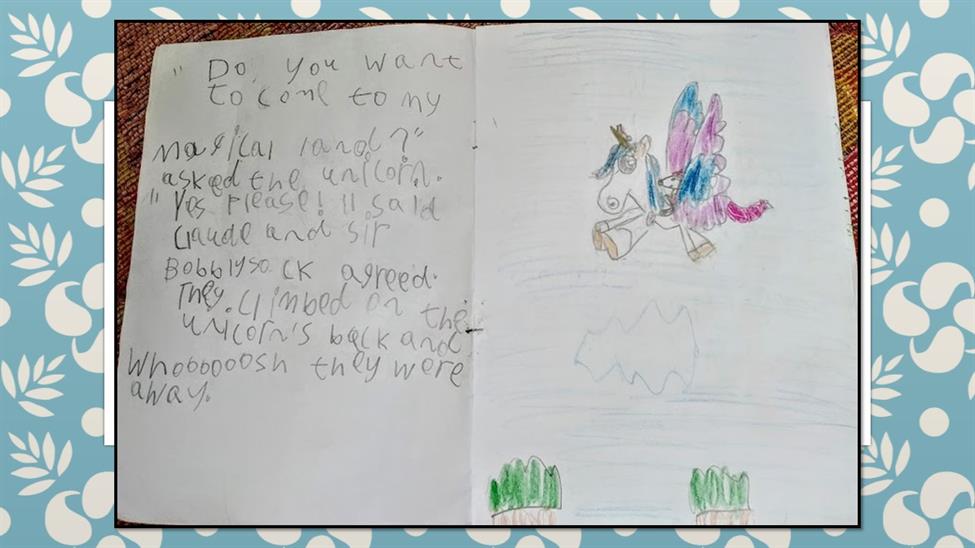 " Do, you want
to come to my
magical land?"
asked the unicorn.
"Yes please! 11 said
Claude and sir
Bobblyso ck agreed.
They. climbed on the
unicorn's back and
whoooooosh they were
away.